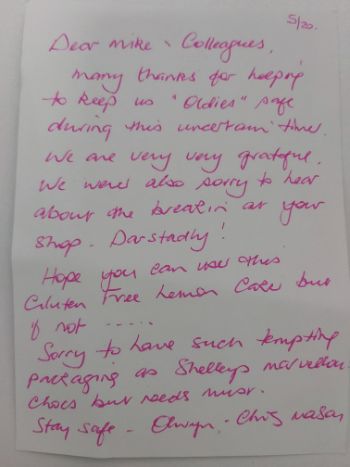 5/20.
Dear Mike & Colleagues,
Many thanks for helping
to keep us "Oldies" safe
during this uncertain time.
We are very very grateful.
We were also sorry to hear
about the break in at your
shop. Darstadly!
Hope you can use this
Gluten Free Lemon Cake but
if not -----
Sorry to have such tempting
packaging as Shelleys marvellous
chocs but needs must.
Stay safe - Olwyn & Chris Mason